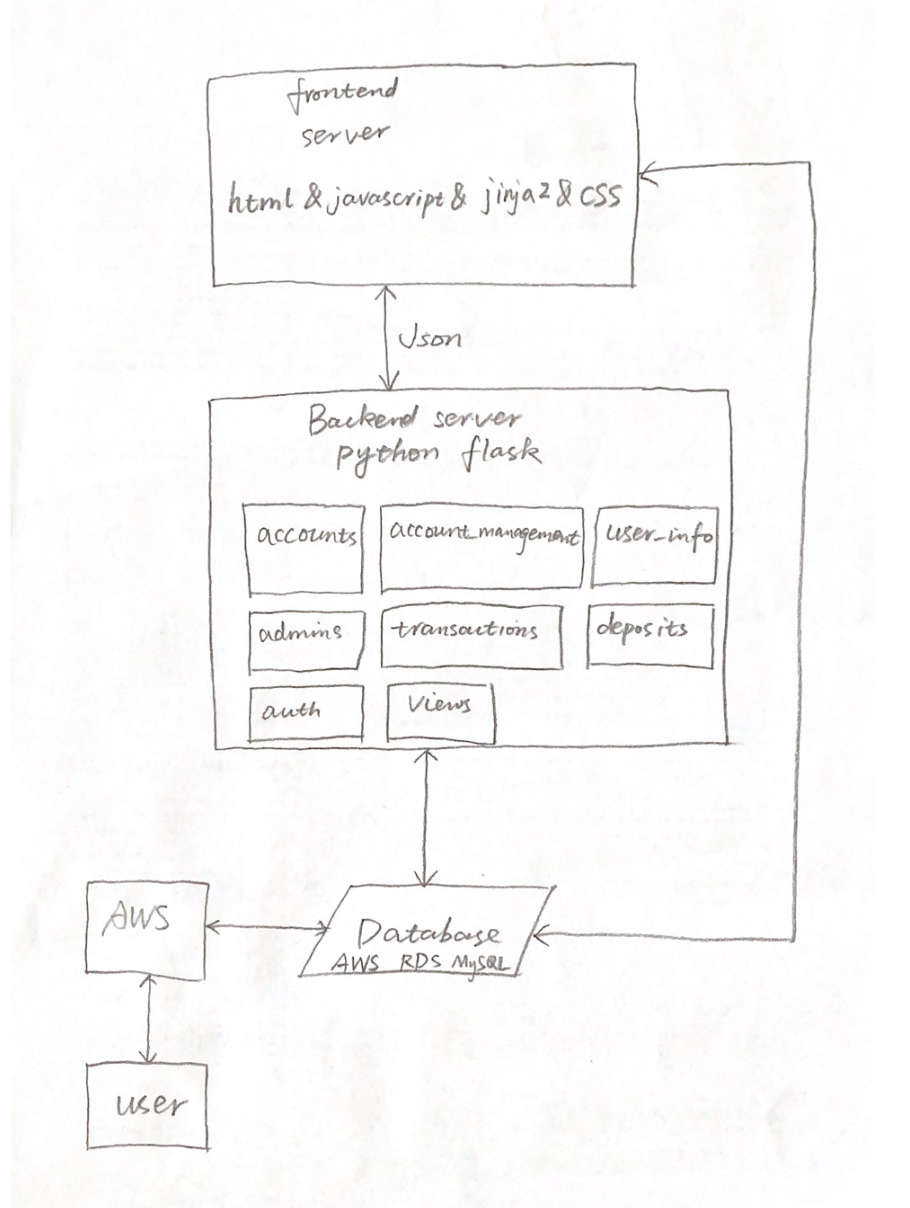 frontend
server
html & javascript & jinja2 & CSS
Json
Backend server
python flask
accounts
account_management
user_info
admins
transactions
deposits
auth
views
AWS
Database
AWS RDS MySQL
user